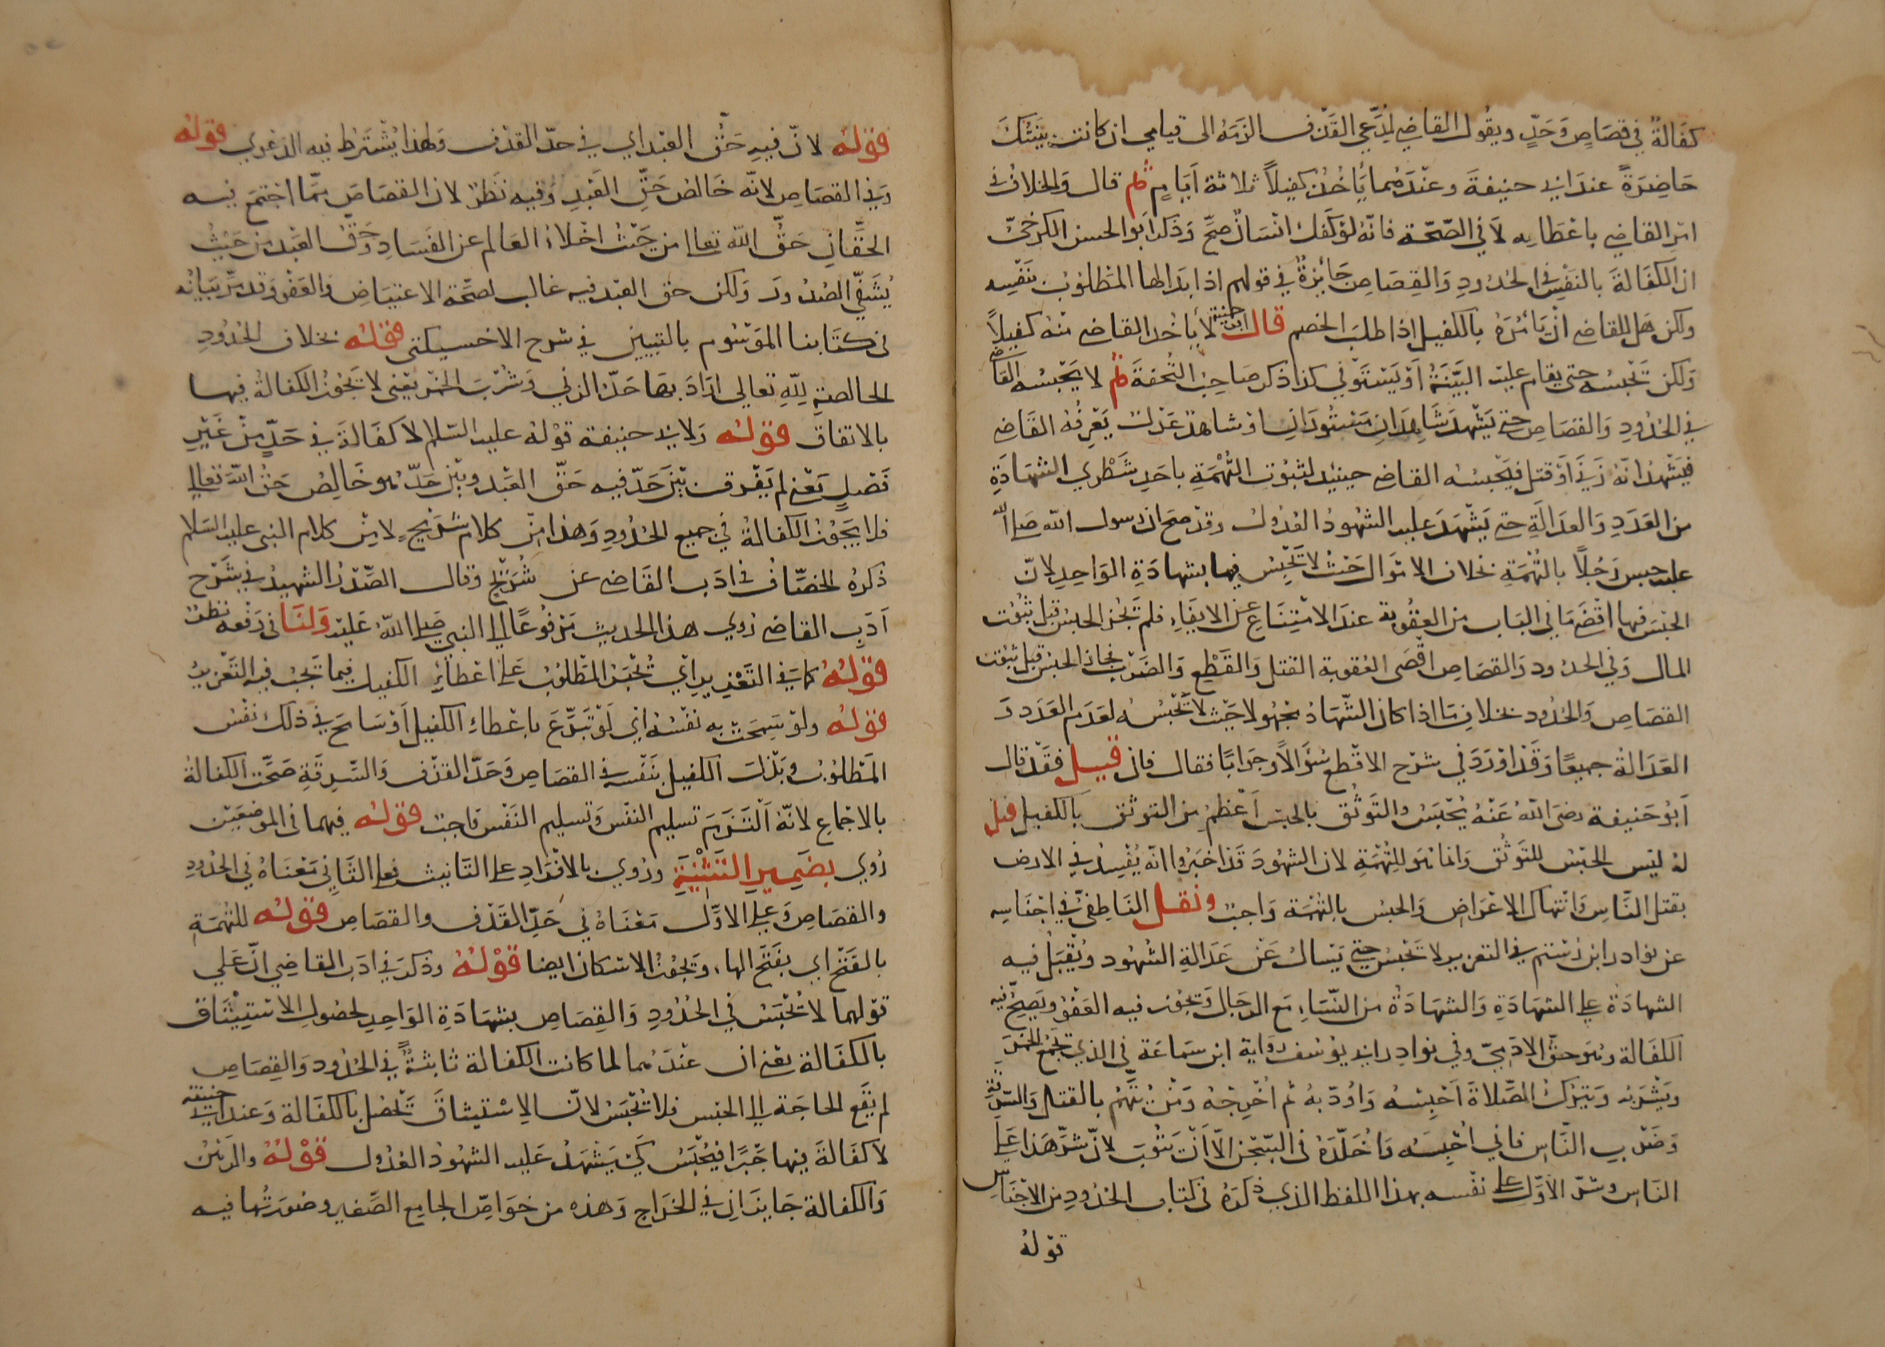 كفالةً في قصاصٍ وحدٍّ ويقول القاضي لمدّعي القذف الزمه الى قيامي ان كانت بينتك
حاضرةً عند ابي حنيفة وعندهما يأخذ كفيلاً ثلاثة ايامٍ ثم قال والخلاف في
امر القاضي باعطائه لا في الصّحّة فانه لو كفل انسان صحّ وذكر ابو الحسن الكرخيّ
ان الكفالة بالنفس في الحدود والقصاص جائزةٌ في قولهم اذا بدلها المطلوب بنفسه
ولكن هل للقاضي ان يأمره بالكفيل اذا طلب الخصم قال ابو حنيفة لا يأخذ القاضي منه كفيلاً
ولكن يحبسه حتى يقام عليه البيّنة او يستوفي كذا ذكر صاحب التحفة ثم لا يحبسه القاضي
في الحدود والقصاص حتى يشهد شاهدان مستوران او شاهد عدل يعرفه القاضي
فيشهد انه زنى او قتل فيحبسه القاضي حينئذ لثبوت التهمة باحد شطري الشهادة
من العدد والعدالة حتى يشهد عليه الشهود العدول وقد صح ان رسول الله صلى الله
عليه حبس رجلاً بالتهمة بخلاف الاموال حيث لا يحبس فيها بشهادة الواحد لانّ
الحبس فيها اقصى ما في الباب من العقوبة عند الامتناع عن الايفاء فلم يجز الحبس قبل ثبوت
المال وفي الحدود والقصاص اقصى العقوبة القتل والقطع والضرب فجاز الحبس قبل ثبوت
القصاص والحدود بخلاف ما اذا كان الشهاد مجهولا حيث لا يحبسه لعدم العدد و
العدالة جميعًا وقد اورد في شرح الاقطع سؤالاً وجوابًا فقال فان قيل فقد قال
ابو حنيفة رضى الله عنه يحبس والتوثق بالحبس اعظم من التوثق بالكفيل قيل
له ليس الحبس للتوثق وانما هو للتهمة لان الشهود قد اخبروا انه يفسد في الارض
بقتل النّاس وانتهاك الاعراض والحبس بالتهمة واجب ونقل الناطفيّ في اجناسه
عن نوادر ابن رستم في التعزير لا تحبس حتى يسال عن عدالة الشهود ويقبل فيه
الشهادة على الشهادة والشهادة من النساء مع الرجال ويجوز فيه العفو ويصحّ فيه
الكفالة وهو حق الادميّ وفي نوادر ابي يوسف رواية ابن سماعة في الذي يجمع الخمر
ويشربه ويترك الصلاة احبسه واودبه ثم اخرجه ومن يتّهم بالقتل والسرقة
وضرب الناس فاني احبسه واخلّده في السّجن الا ان يتوب لانّ شرّ هذا على
الناس وشر الاوّل على نفسه بهذا اللفظ الذي ذكره في كتاب الحدود من الاجناس
قوله
قوله لانّ فيه حقّ العبد اي في حدّ القذف ولهذا يشترط فيه الدعوى قوله
وفي القصاص لانّه خالص حقّ العبد وفيه نظر لان القصاص ممّا اجتمع فيه
الحقّان حقّ الله تعالى من حيث اخلاء العالم عن الفساد وحق العبد من حيث
يشفّي الصدور ولكن حق العبد فيه غالب لصحّة الاعتياض والعفو وقد مرّ بيانه
في كتابنا الموسوم بالتبيين في شرح الاخسيكتي قوله بخلاف الحدود
الخالصة لله تعالى اراد بها حدّ الزنى وشرب الخمر يعنى لا تجوز الكفالة فيها
بالاتفاق قوله ولابي حنيفة قوله عليه السلم لا كفالة في حدٍّ من غير
فصلٍ يعني لم يفرق بين حدّ فيه حقّ العبد وبين حدّ هو خالص حق الله تعالى
فلا يجوز الكفالة في جميع الحدود وهذا من كلام شريح لا من كلام النبي عليه السلام
ذكره الخصّاف في ادب القاضي عن شريح وقال الصّدر الشهيد في شرح
ادب القاضي روي هذا الحديث مرفوعًا الى النبي صلى الله عليه ولنا في رفعه نظر
قوله كما في التعزير اي يحبس المطلوب على اعطاء الكفيل فيما يجب فيه التعزير
قوله ولو سمحت به نفسه اي لو تبرّع باعطاء الكفيل او سامح في ذلك نفس
المطلوب وبذل الكفيل بنفسه في القصاص وحدّ القذف والسّرقة صحّت الكفالة
بالاجماع لانّه التزم تسليم النفس وتسليم النفس واجب قوله فيهما في الموضعين
روي بضمير التثنية وروي بالافراد على التانيث فعلى الثاني معناه في الحدود
والقصاص وعلى الاوّل معناه في حدّ القذف والقصاص قوله للتهمة
بالفتح اي بفتح الهاء ويجوز الاسكان ايضا قوله وذكر في ادب القاضي انّ على
قولهما لا يحبس في الحدود والقصاص بشهادة الواحد لحصول الاستيثاق
بالكفالة يعني ان عندهما لما كانت الكفالة ثابثةً في الحدود والقصاص
لم يقع الحاجة الى الحبس فلا يحبس لانّ الاستيثاق يحصل بالكفالة وعند ابي حنيفة
لا كفالة فيها جبرًا فيحبس كي يشهد عليه الشهود العدول قوله والرهن
والكفالة جايزان في الخراج وهذه من خواصّ الجامع الصّغير وصورتها فيه